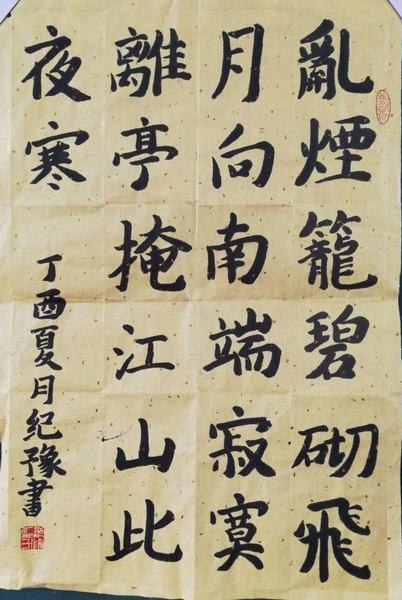 亂煙籠碧砌飛
月向南端寂寞
離亭掩江山此
夜寒
丁酉夏月紀豫書